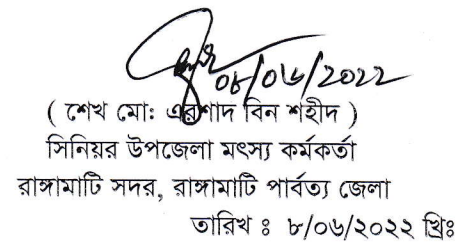 ০৮/০৬/২০২২
( শেখ মো: এরশাদ বিন শহীদ )
সিনিয়র উপজেলা মৎস্য কর্মকর্তা
রাঙ্গামাটি সদর, রাঙ্গামাটি পার্বত্য জেলা
তারিখ ঃ ৮/০৬/২০২২ খ্রিঃ